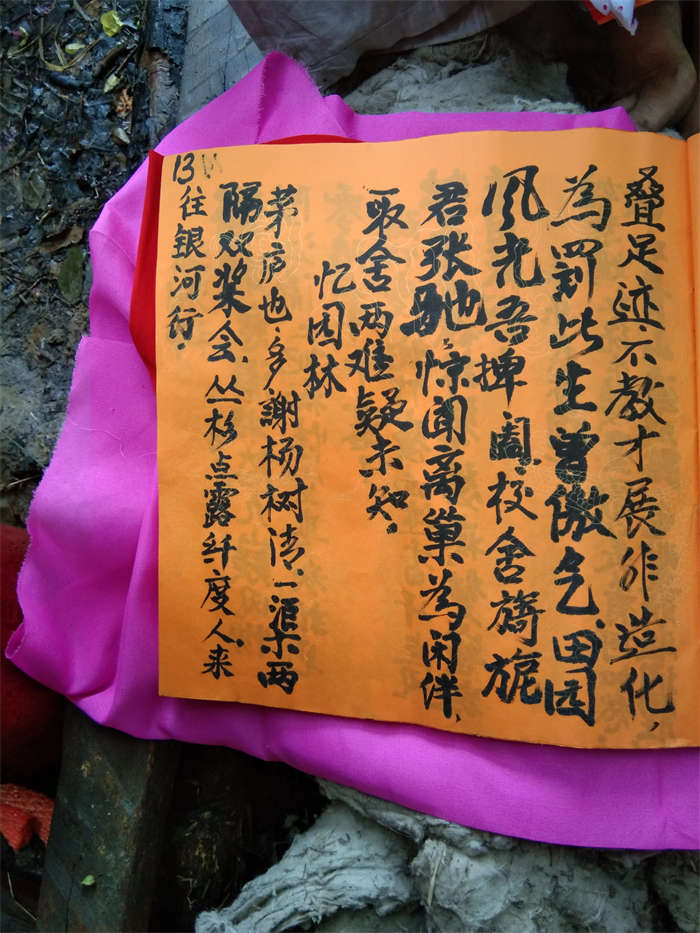 叠足迹，不教才展非造化，
為罰此生曾傲气。田园
风光吾捭阖，校舍旖旎
君张驰，惊闻离巢為闲伴，
取舍两难疑未知。
忆园林
茅庐也，多謝杨树清，一源水两
隔双桨会，丛杉点露纤度人来
13往银河行。